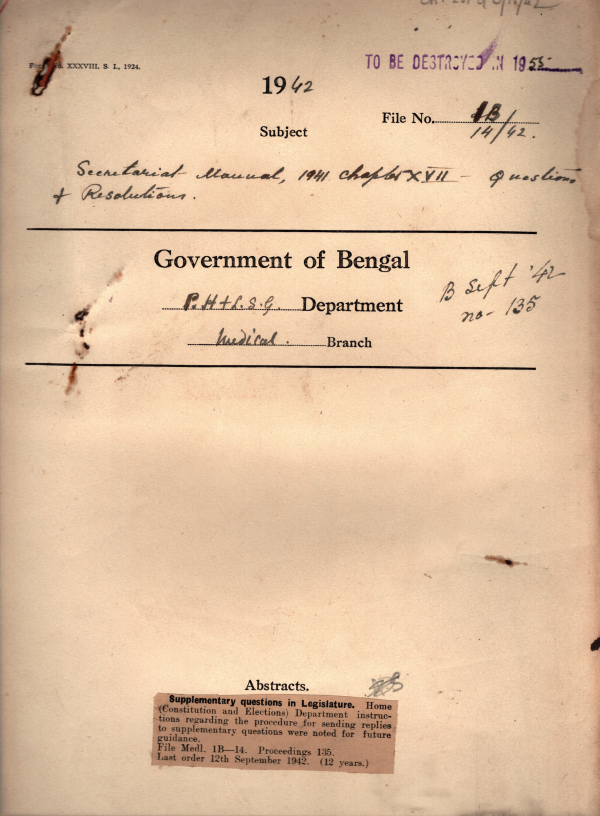 TO BE DESTROYED IN 1955
No. XXXVIII. S. I., 1924.
1942
File No. 1B/
14/42.
Subject
Secretariat Manual, 1941 Chapter XVII - Questions
& Resolutions.
Government of Bengal
P.H & L.S.G. Department
Medical. Branch
B Sept '42
no- 135
Abstracts.
Supplementary questions in Legislature. Home
(Constitution and Elections) Department instruc-
tions regarding the procedure for sending replies
to supplementary questions were noted for future
guidance.
File Medl. 1B—14. Proceedings 135.
Last order 12th September 1942. (12 years.)